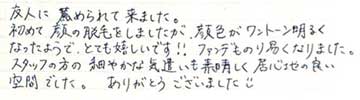 友人に薦められて来ました。
初めて顔の脱毛をしましたが、顔色がワントーン明るく
なったようで、とても嬉しいです!! ファンデものり易くなりました。
スタッフの方の細やかな気遣いも素晴しく居心地の良い
空間でした。 ありがとうございました